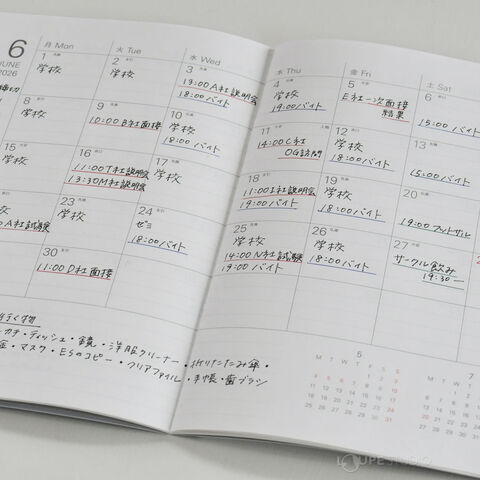 6
JUNE
2026
月 Mon
火 Tue
水 Wed
木 Thu
金 Fri
土 Sat
1
学校
2
学校
3
19:00 A社説明会
18:00 バイト
4
学校
19:00 バイト
5
E社一次面接
結果
6
15:00 バイト
8
学校
9
10:00 B社面接
10
学校
18:00 バイト
11
14:00 C社
OG訪問
12
学校
18:00 バイト
13
15:00 バイト
15
学校
16
11:00 T社説明会
13:30 M社説明会
17
学校
18
11:00 I社説明会
19:00 バイト
19
学校
18:00 バイト
20
19:00 フットサル
A社試験
23
学校
24
ゼミ
18:00 バイト
25
学校
14:00 N社試験
19:00 バイト
26
学校
18:00 バイト
27
サークル飲み
19:30〜
30
11:00 D社面接
行く物
カチ・ティッシュ・鏡・洋服クリーナー・折りたたみ傘・
金・マスク・ESのコピー・クリアファイル・手帳・歯ブラシ
5
M T W T F S S
1 2 3
4 5 6 7 8 9 10
11 12 13 14 15 16 17
18 19 20 21 22 23 24
25 26 27 28 29 30 31
7
M T W
LOUPE STUDIO